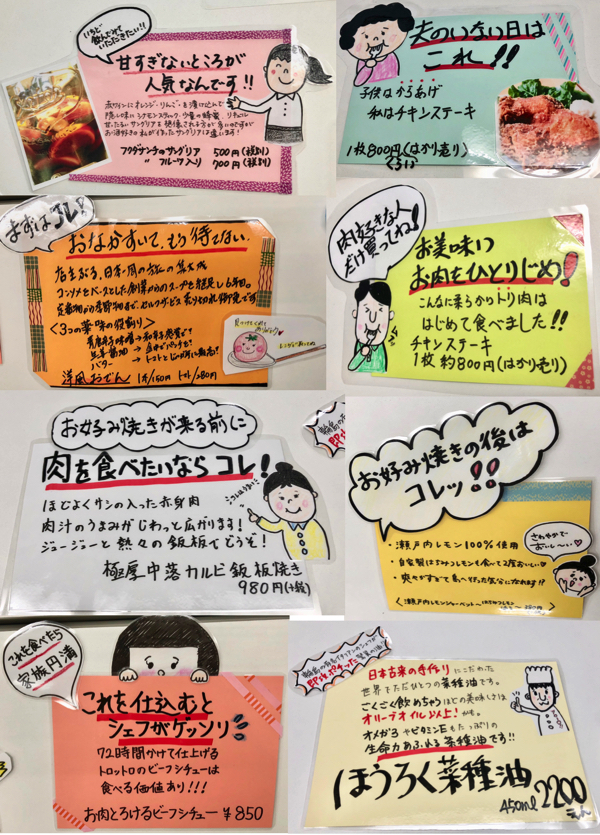 いちど
飲んでみて
いただきたい!!
甘すぎないところが
人気なんです!!
赤ワインにオレンジ・りんご・を漬け込んで
隠し味にシナモンスティック・少量の蜂蜜
甘ったるいサングリアを想像される方が多いのですが
お酒好きの私が作ったサングリアは違います!
フクダサンチのサングリア 500円(税別)
〃 フルーツ入り 700円(税別)
夫のいない日は
これ!!
子供はからあげ
私はチキンステーキ
1枚800円(はかり売り)
くらい
まずはコレ!
おなかすいて、もう待てない。
コンソメをベースとした
<3つの薬味の役割り>
バター
洋風おでん 1本/150円 トマト/280円
肉好きな人
だけ買ってね!
お美味いつ
お肉をひとりじめ!
こんなに柔らかいトリ肉は
はじめて食べました!!
チキンステーキ
1枚 約800円(はかり売り)
お好み焼きが来る前に
肉を食べたいならコレ!
ほどよくサシの入った赤身肉
肉汁のうまみがじわっと広がります!
ジュージューと熱々の鉄板でどうぞ!
極厚中落カルビ鉄板焼き
980円(+税)
お好み焼きの後は
コレッ!!
・瀬戸内レモン100%使用
・自家製はちみつレモンも食べて2度おいしい♡
・爽やかすぎて島へ行った気分になれます!?
さわやかで
おいし〜い♡
<瀬戸内レモンシャーベット〜はちみつレモン
これを食べたら
家族円満
これを仕込むと
シェフがゲッソリ
72時間かけて仕上げる
トロットロのビーフシチューは
食べる価値あり!!!
お肉とろけるビーフシチュー ¥850
日本古来の手作りにこだわった
世界でただひとつの菜種油です。
ごくごく飲めちゃうほどの美味しさは
オリーブオイル以上!かも。
オメガ3やビタミンEもたっぷりの
生命力あふれる菜種油です!!
ほうろく菜種油
450ml 2200
えん